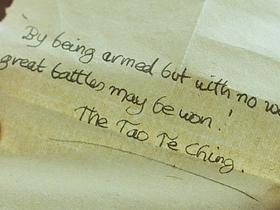 'By being armed but with no
great battles may be won.'
The Tao Te Ching.